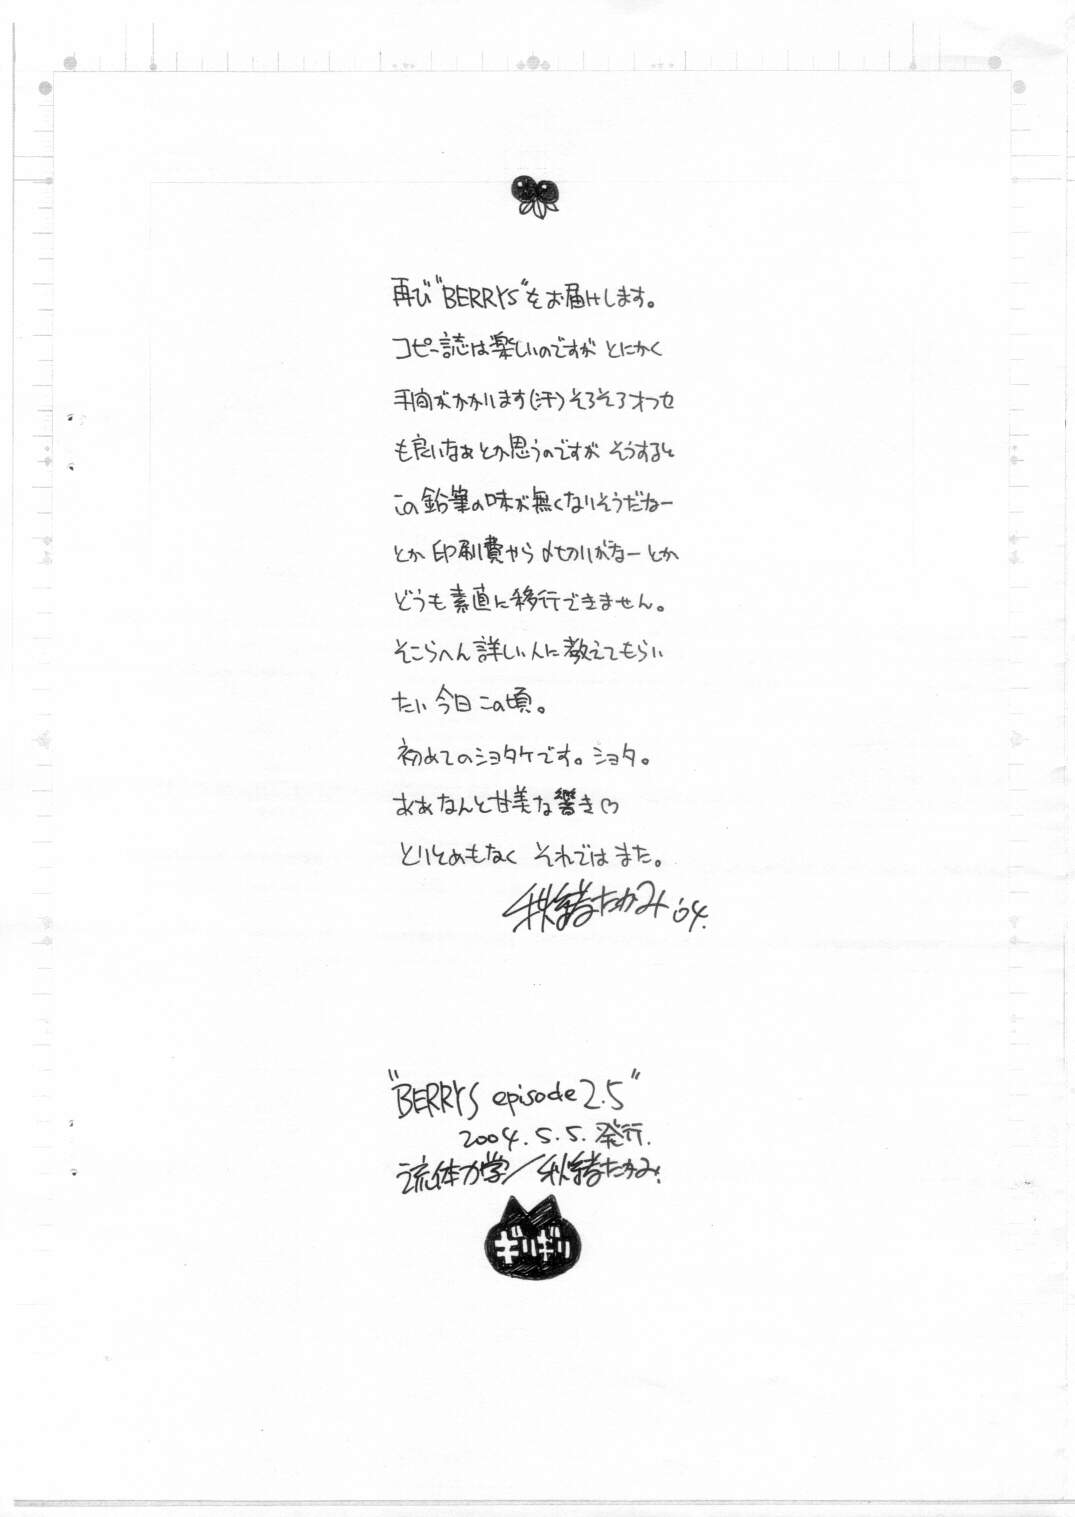 再び"BERRYS"をお届けします。
コピー誌は楽しいのですが とにかく
手間がかかります(汗)そろそろオフセ
も良いなぁとか思うのですが そうすると
この鉛筆の味が無くなりそうだねー
とか 印刷費やら〆切りがなーとか
どうも素直に移行できません。
そこらへん詳しい人に教えてもらい
たい今日この頃。
初めてのショタケです。ショタ。
ああなんと甘美な響き♡
とりとめもなく それではまた。
秋緒たかみ '04.
"BERRYS episode 2.5"
2004.5.5.発行.
流体力学/秋緒たかみ.
ギリギリ